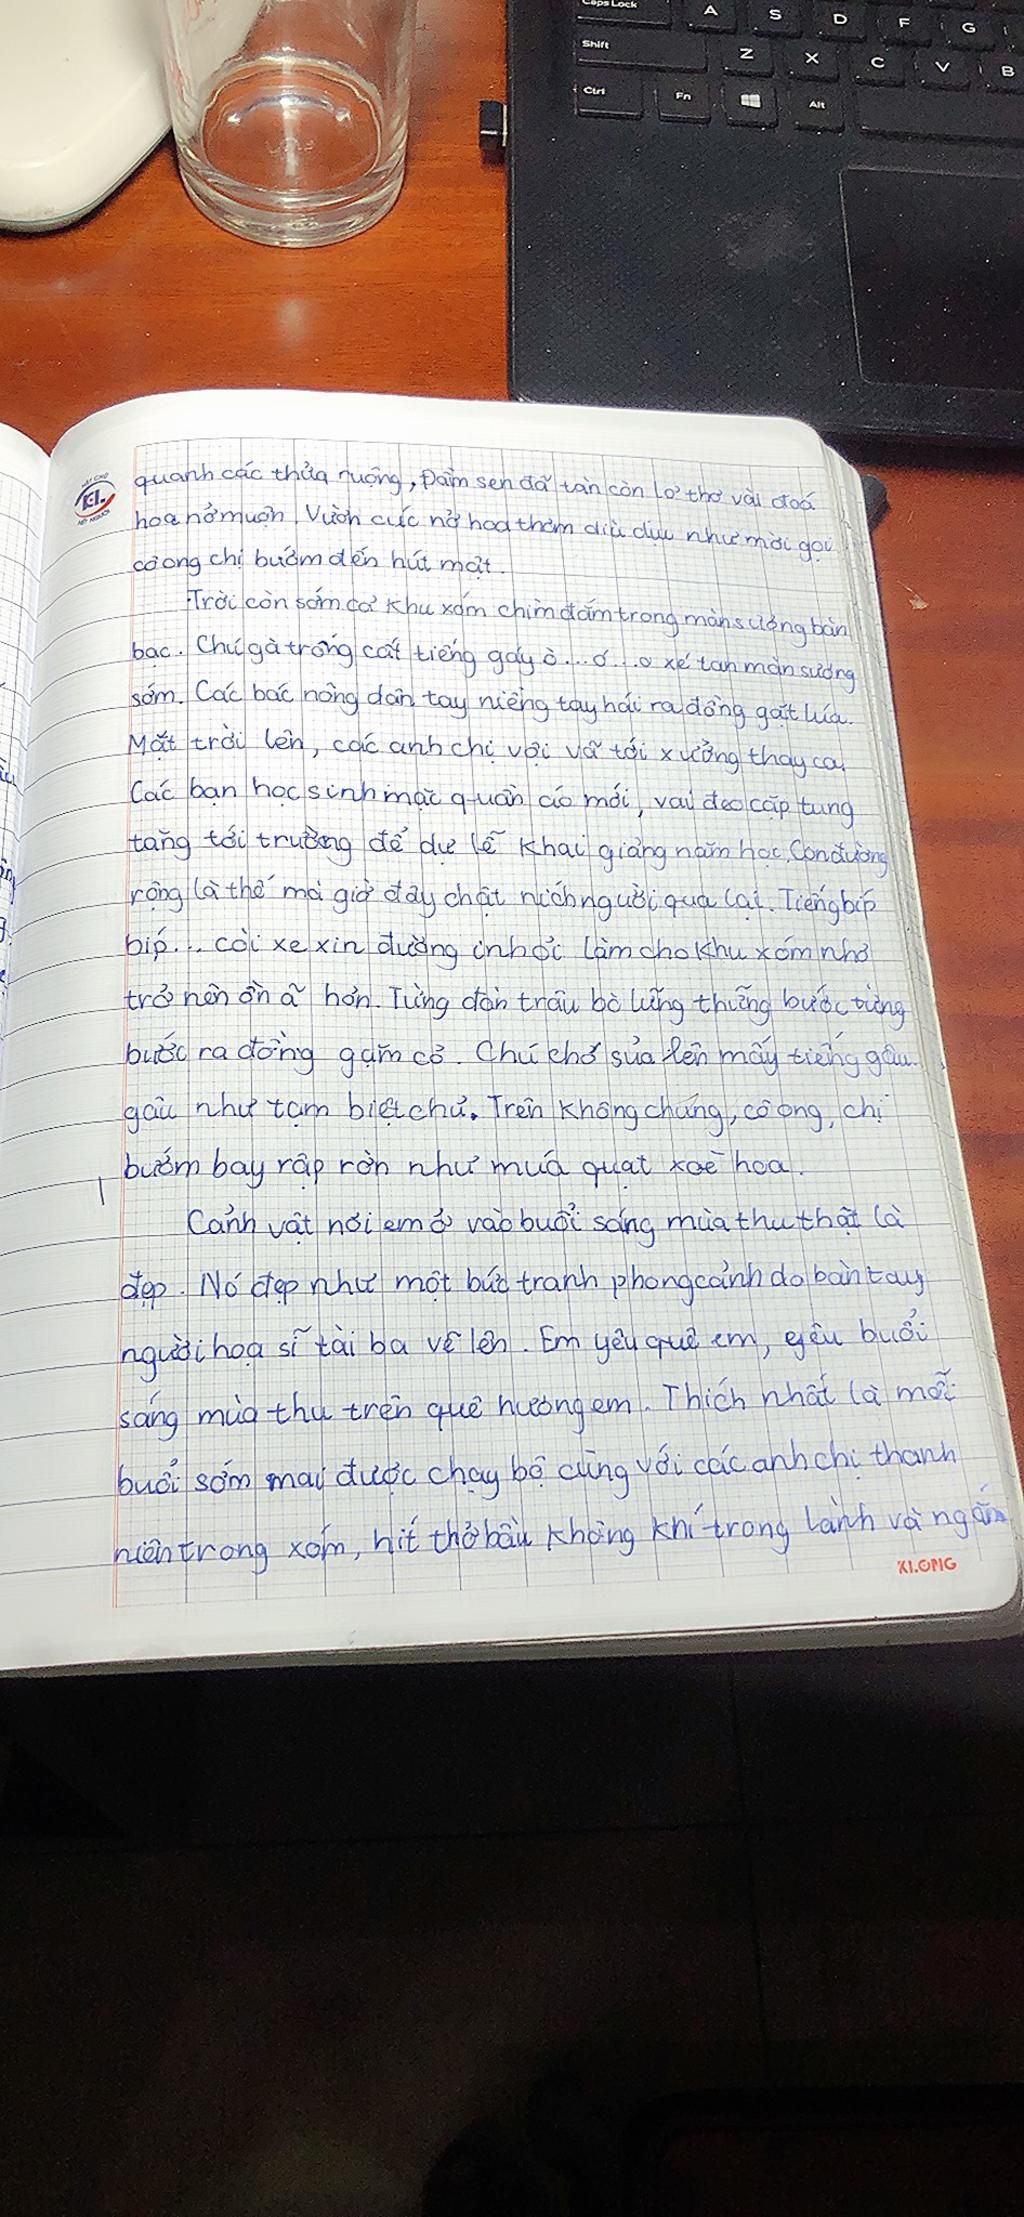 Caps Lock A S D F G
Shift Z X C V B
Ctrl Fn Alt
KL
quanh các thửa ruộng, Đầm sen đã tàn còn lơ thơ vài đoá
hoa nở muộn. Vườn cúc nở hoa thơm dìu dịu như mời gọi
cô ong chị bướm đến hút mật.
Trời còn sớm, cả khu xóm chìm đắm trong màn sương bàn
bạc. Chú gà trống cất tiếng gáy ò...ó...o xé tan màn sương
sớm. Các bác nông dân tay niềng tay hái ra đồng gặt lúa.
Mặt trời lên, các anh chị vội vã tới xưởng thay ca.
Các bạn học sinh mặc quần áo mới, vai đeo cặp tung
tăng tới trường để dự lễ khai giảng năm học. Con đường
rộng là thế mà giờ đây chật ních người qua lại. Tiếng bíp
bíp... còi xe xin đường inh ỏi làm cho khu xóm nhỏ
trở nên ồn ã hơn. Từng đàn trâu bò lững thững bước từng
bước ra đồng gặm cỏ. Chú chó sủa lên mấy tiếng gâu
gâu như tạm biệt chủ. Trên không chung, cô ong, chị
bướm bay rập rờn như múa quạt xoè hoa.
Cảnh vật nơi em ở vào buổi sáng mùa thu thật là
đẹp. Nó đẹp như một bức tranh phong cảnh do bàn tay
người hoạ sĩ tài ba vẽ lên. Em yêu quê em, yêu buổi
sáng mùa thu trên quê hương em. Thích nhất là mỗi
buổi sớm mai được chạy bộ cùng với các anh chị thanh
niên trong xóm, hít thở bầu không khí trong lành và ngắm
KLONG